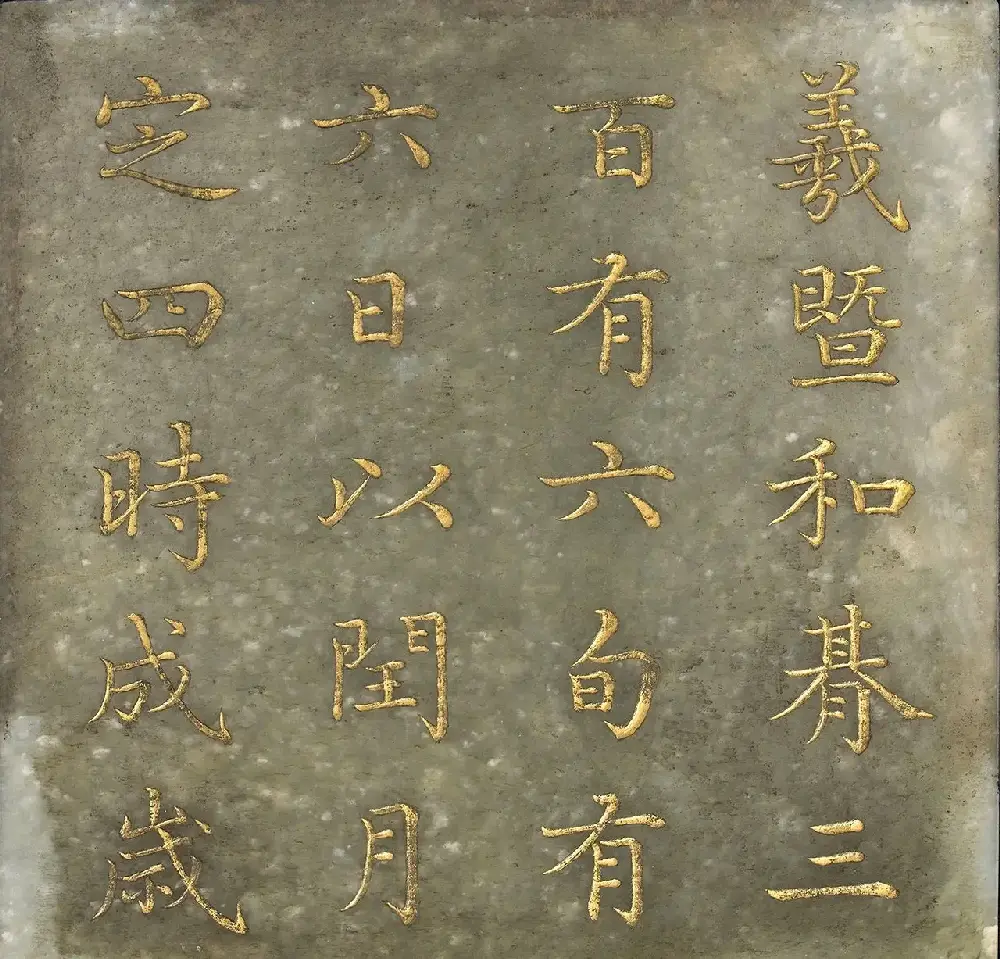 羲暨和朞三
百有六旬有
六日以閏月
定四時成歳